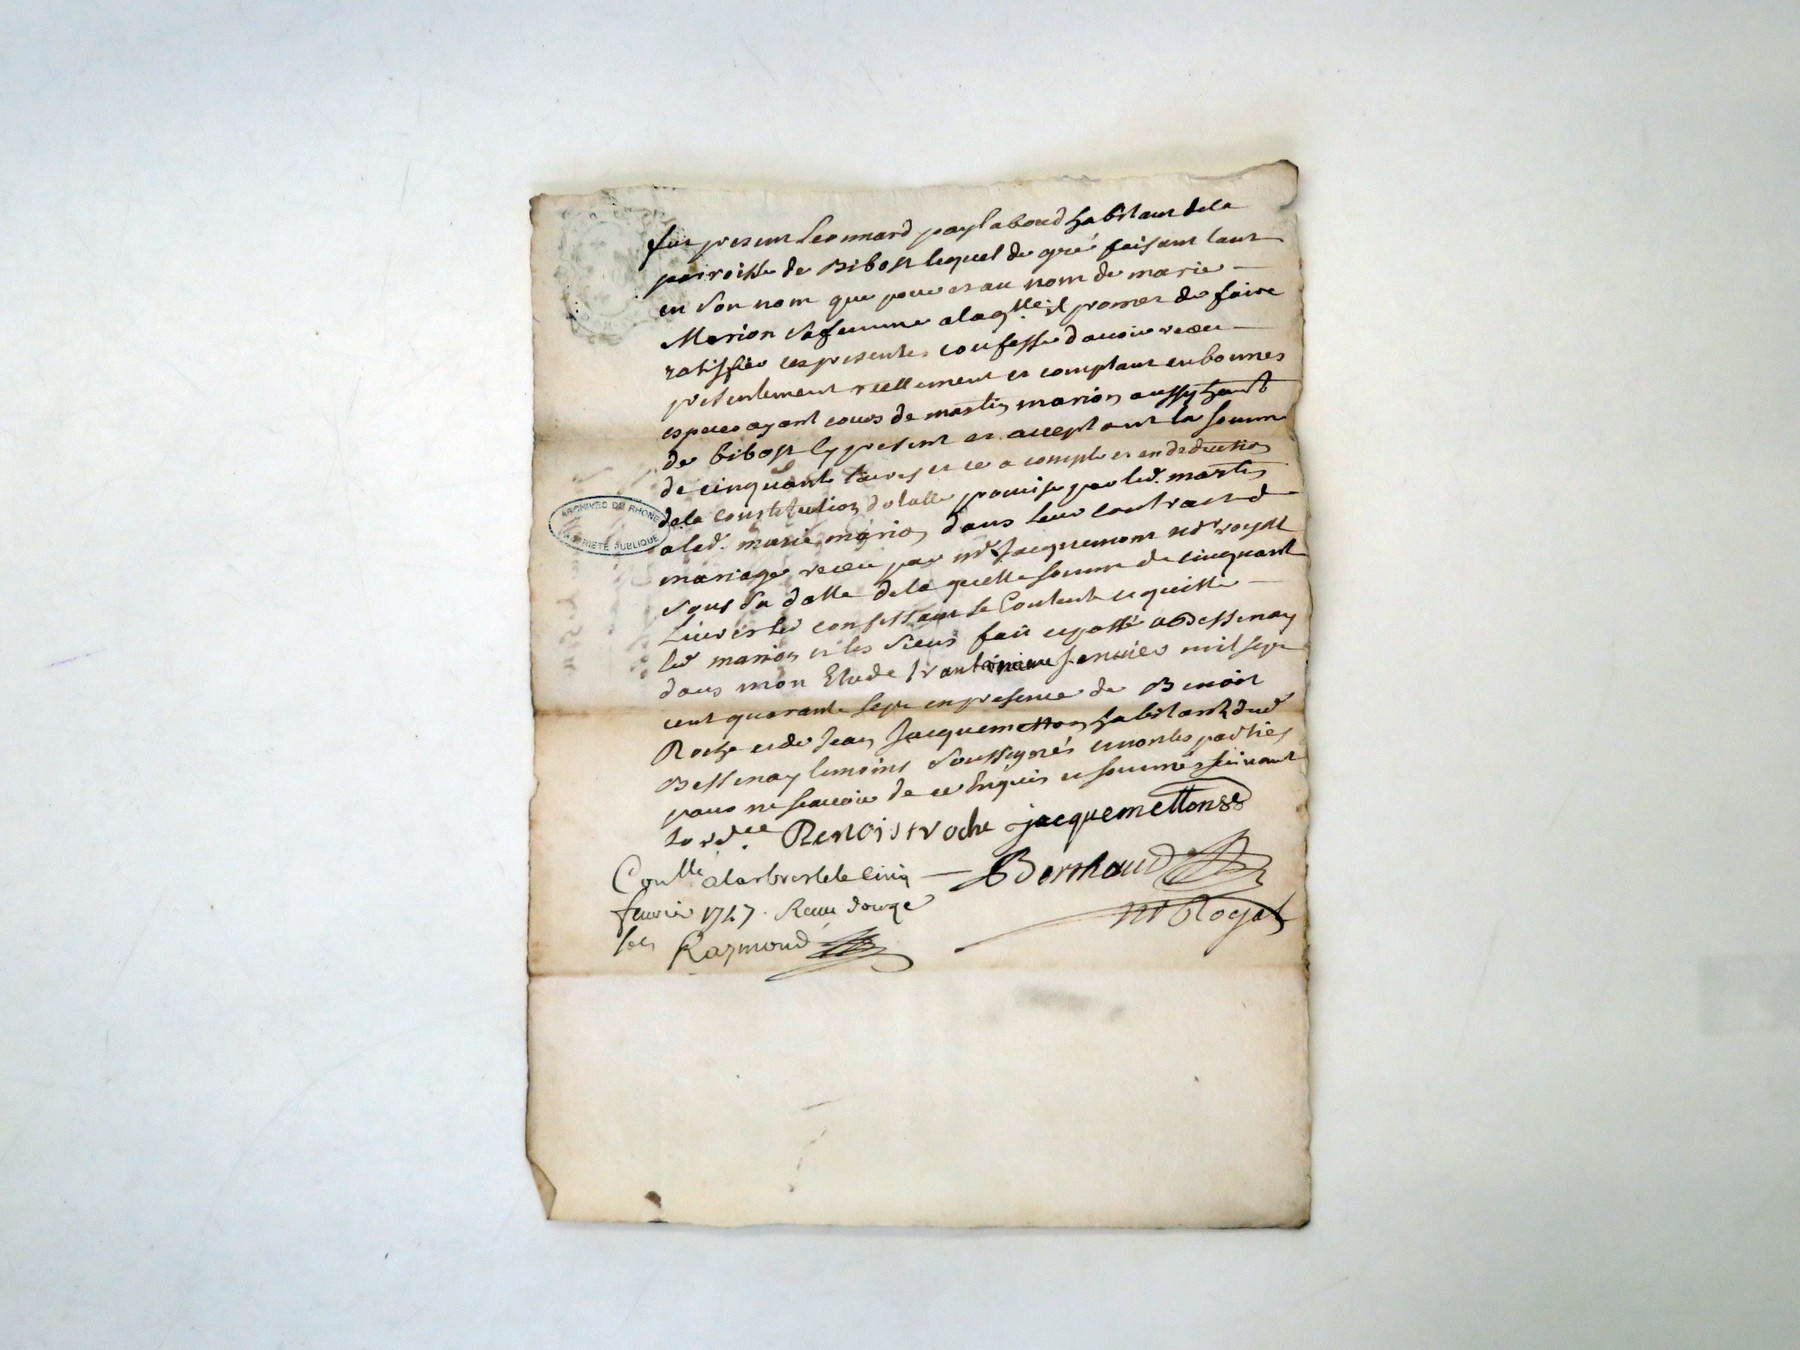 fut present Leonnard paylaboud habitant de la
parroisse de Bibost lequel de gré faisant tant
en son nom que pour et au nom de marie
Marion sa femme a laqlle il promet de faire
ratiffier ces presentes confesse d'avoir receu
presentement reellement et comptant en bonnes
especes ayant cours de martin marion aussy habt
de bibost y present et acceptant la somme
de cinquante livres et ce a compte et en deduction
de la constitution dotalle promise par led. martin
a lad. marie marion dans leur contract de
mariage receu par me Jacquemont nre royal
sous sa datte de la quelle somme de cinquante
Livres led confessant se Contente et quitte
led marion et les siens fait et passé a Bessenay
dans mon Etude le janvier mil sept
cent quarante sept en presence de Benoit
Roche et de Jean Jacquemetton habitants dud
Bessenay temoins soussignés et non les parties
pour ne scavoir de ce Enquis et sommés suivant
lordce Benoist roche jacquemetton
Conlle a larbresle le cinq
Berthaud
fevrier 1747. Receu douze
nre Royal
sols Raymond
ARCHIVES DU RHONE
PROPRIETE PUBLIQUE